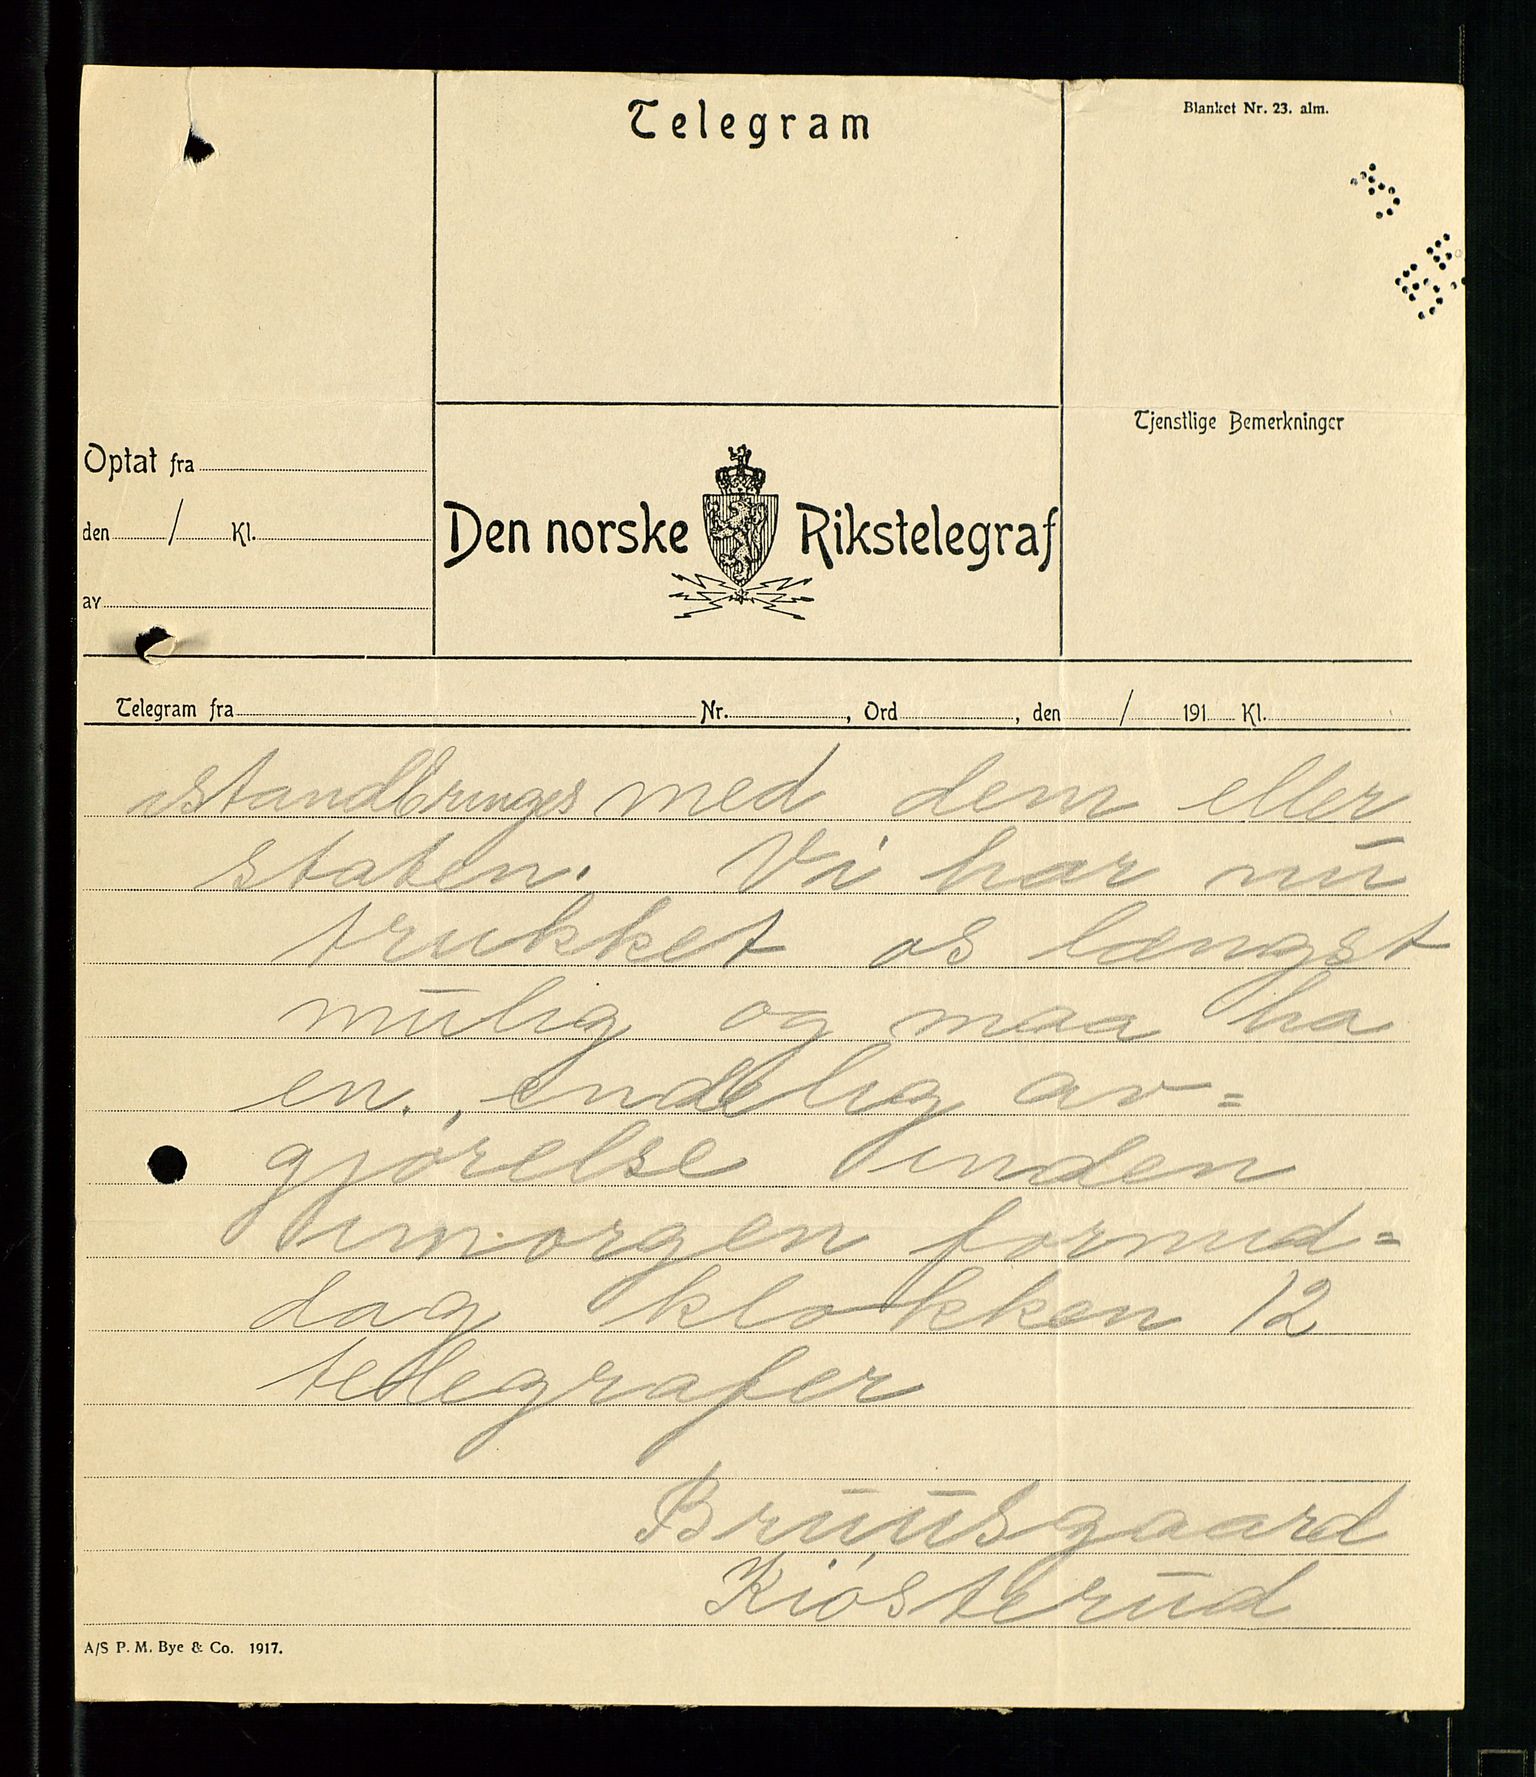 Telegram
Blanket Nr. 23. alm.
Tjenstlige Bemerkninger
Optat fra
den / Kl.
av
Den norske Rikstelegraf
Telegram fra Nr. , Ord , den / 191 Kl.
istandbringes med dem eller
staten. Vi har nu
trukket os længst
mulig og maa ha
en endelig av=
gjørelse inden
imorgen formid=
dag klokken 12
telegrafer
Bruusgaard
Kiøsterud
A/S P. M. Bye & Co. 1917.